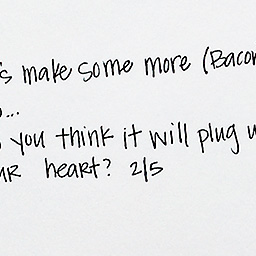 's make some more (Bacon
...
you think it will plug u
ur heart? 2/5